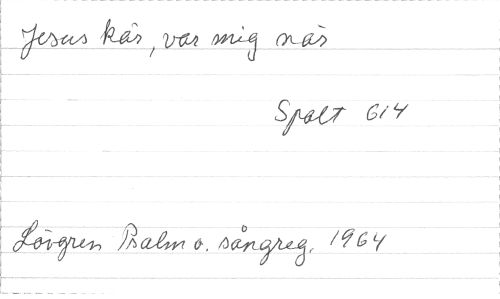 Jesus kär, var mig när
Spalt 614
Lövgren Psalm o. sångreg. 1964